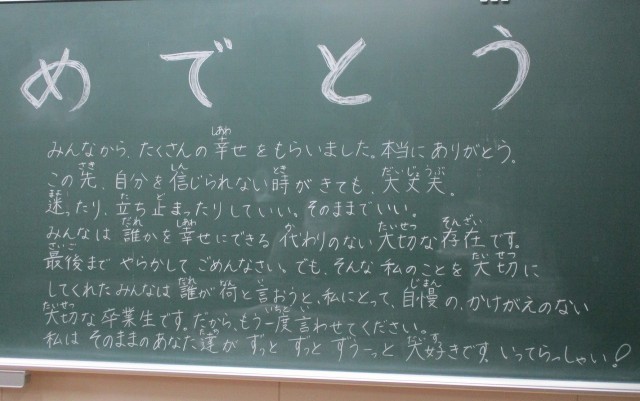 めでとう
みんなから、たくさんの幸せをもらいました。本当にありがとう。
この先、自分を信じられない時がきても、大丈夫。
迷ったり、立ち止まったりしていい。そのままでいい。
みんなは誰かを幸せにできる代わりのない大切な存在です。
最後までやらかしてごめんなさい。でも、そんな私のことを大切に
してくれたみんなは誰が何と言おうと、私にとって、自慢の、かけがえのない
大切な卒業生です。だから、もう一度言わせてください。
私はそのままのあなた達がずっとずっとずぅーっと大好きです。いってらっしゃい!